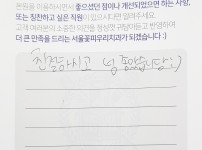 본원을 이용하시면서 좋으셨던 점이나 개선되었으면 하는 사항,
또는 칭찬하고 싶은 직원이 있으시다면 알려주세요.
고객 여러분의 소중한 의견을 정성껏 귀담아듣고 반영하여
더 큰 만족을 드리는 서울꽃피우리치과가 되겠습니다 :)
친절하시고 넘 좋았습니다 :)